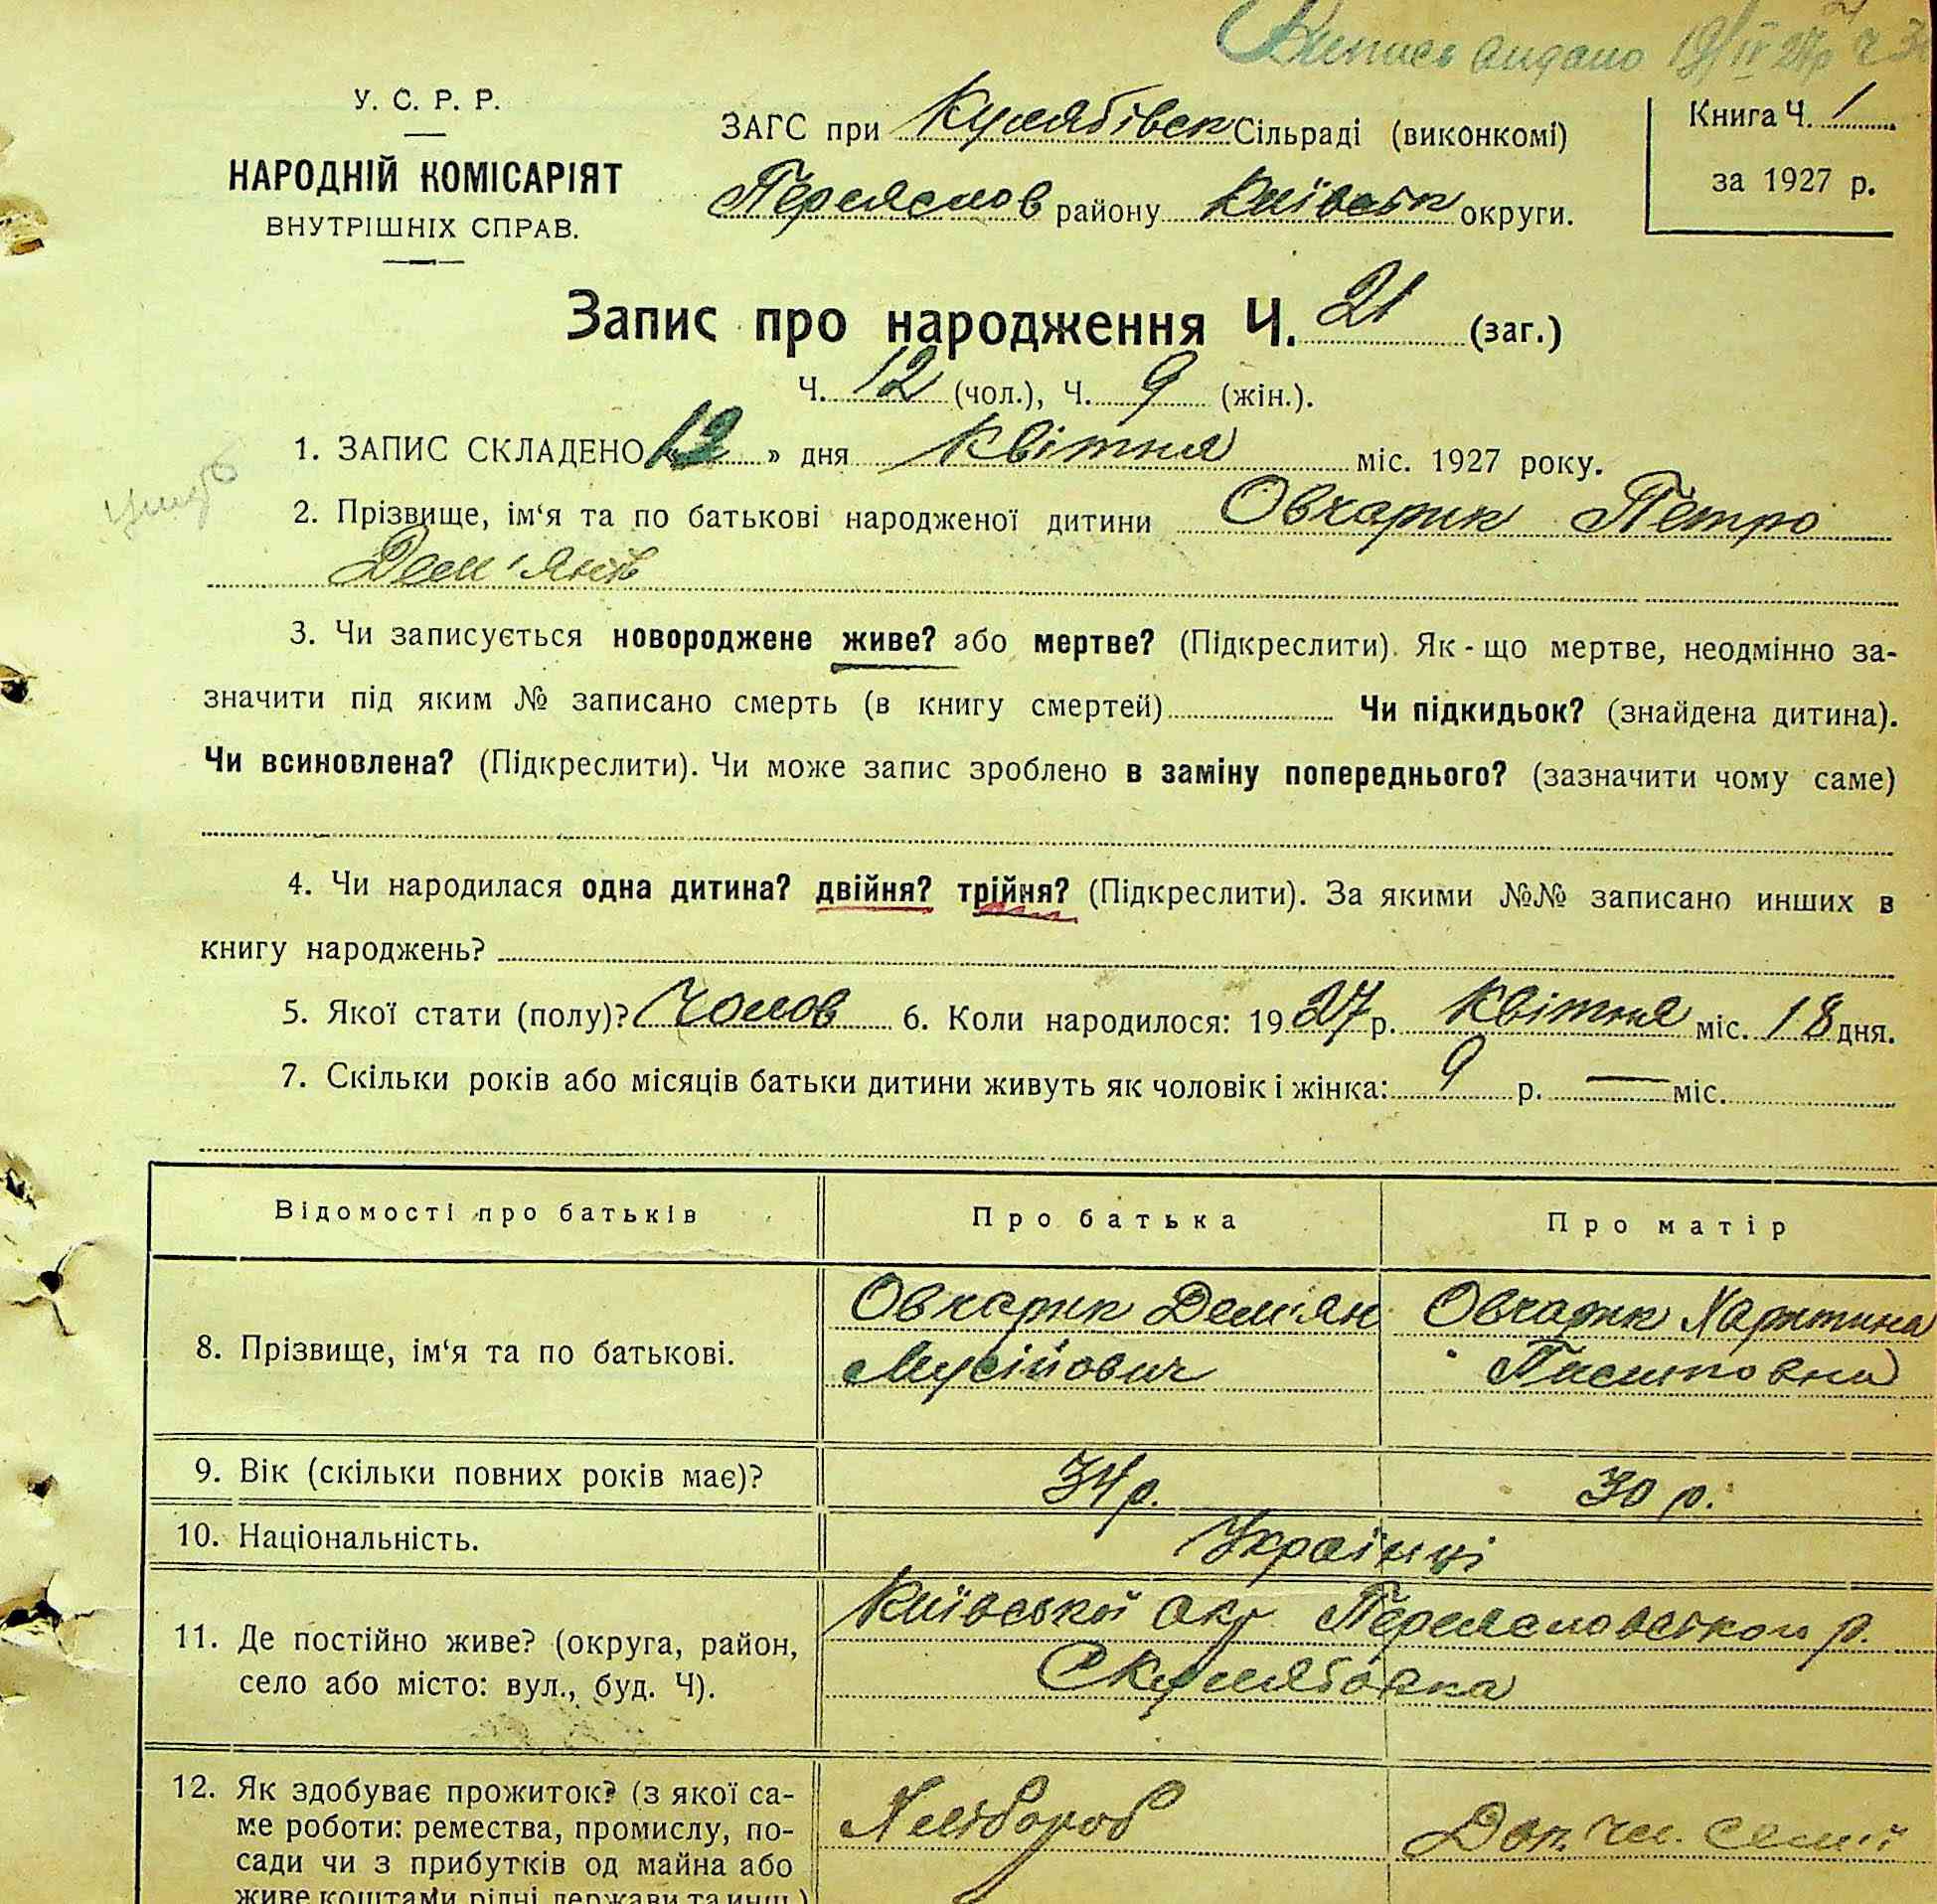 Випись видано 19/IV 27р Ч 3
У. С. Р. Р.
НАРОДНІЙ КОМІСАРІЯТ
ВНУТРІШНІХ СПРАВ.
ЗАГС при Кулябівск Сільраді (виконкомі)
Переяслов району Київськ округи.
Книга Ч. 1
за 1927 р.
Запис про народження Ч. 21 (заг.)
Ч. 12 (чол.), Ч. 9 (жін.).
1. ЗАПИС СКЛАДЕНО » дня Квітня міс. 1927 року.
2. Прізвище, ім‘я та по батькові народженої дитини Овчарик Петро
Дем'янів
3. Чи записується новороджене живе? або мертве? (Підкреслити). Як-що мертве, неодмінно за-
значити під яким № записано смерть (в книгу смертей) Чи підкидьок? (знайдена дитина).
Чи всиновлена? (Підкреслити). Чи може запис зроблено в заміну попереднього? (зазначити чому саме)
4. Чи народилася одна дитина? двійня? трійня? (Підкреслити). За якими №№ записано инших в
книгу народжень?
5. Якої стати (полу)? Чолов 6. Коли народилося: 1927 р. Квітня міс. 18 дня.
7. Скільки років або місяців батьки дитини живуть як чоловік і жінка: 9 р. — міс.
Відомості про батьків Про батька Про матір
8. Прізвище, ім‘я та по батькові. Овчарик Дем'ян Овчарик Харитина
Мусійович Пилиповна
9. Вік (скільки повних років має)? 34 р. 30 р.
10. Національність. Українці
11. Де постійно живе? (округа, район,
село або місто: вул., буд. Ч).
Київської окр Переясловського р.
С Кулябовка
12. Як здобуває прожиток? (з якої са-
ме роботи: ремества, промислу, по-
сади чи з прибутків од майна або
живе коштами рідні держави та инш.)
Хлібороб Доп. чл. семії